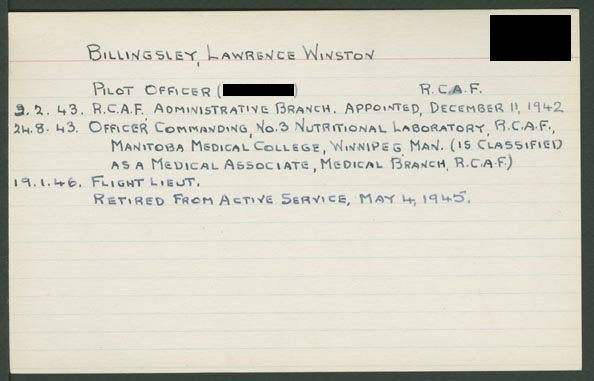 BILLINGSLEY, LAWRENCE WINSTON
PILOT OFFICER ( ) R.C.A.F.
9.2.43. R.C.A.F. ADMINISTRATIVE BRANCH. APPOINTED, DECEMBER 11, 1942
24.8.43. OFFICER COMMANDING, NO.3 NUTRITIONAL LABORATORY, R.C.A.F.,
MANITOBA MEDICAL COLLEGE, WINNIPEG, MAN. (IS CLASSIFIED
AS A MEDICAL ASSOCIATE, MEDICAL BRANCH, R.C.A.F.)
19.1.46. FLIGHT LIEUT.
RETIRED FROM ACTIVE SERVICE, MAY 4, 1945.